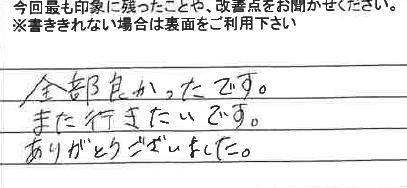 今回最も印象に残ったことや、改善点をお聞かせください。
※書ききれない場合は裏面をご利用下さい
全部良かったです。
また行きたいです。
ありがとうございました。